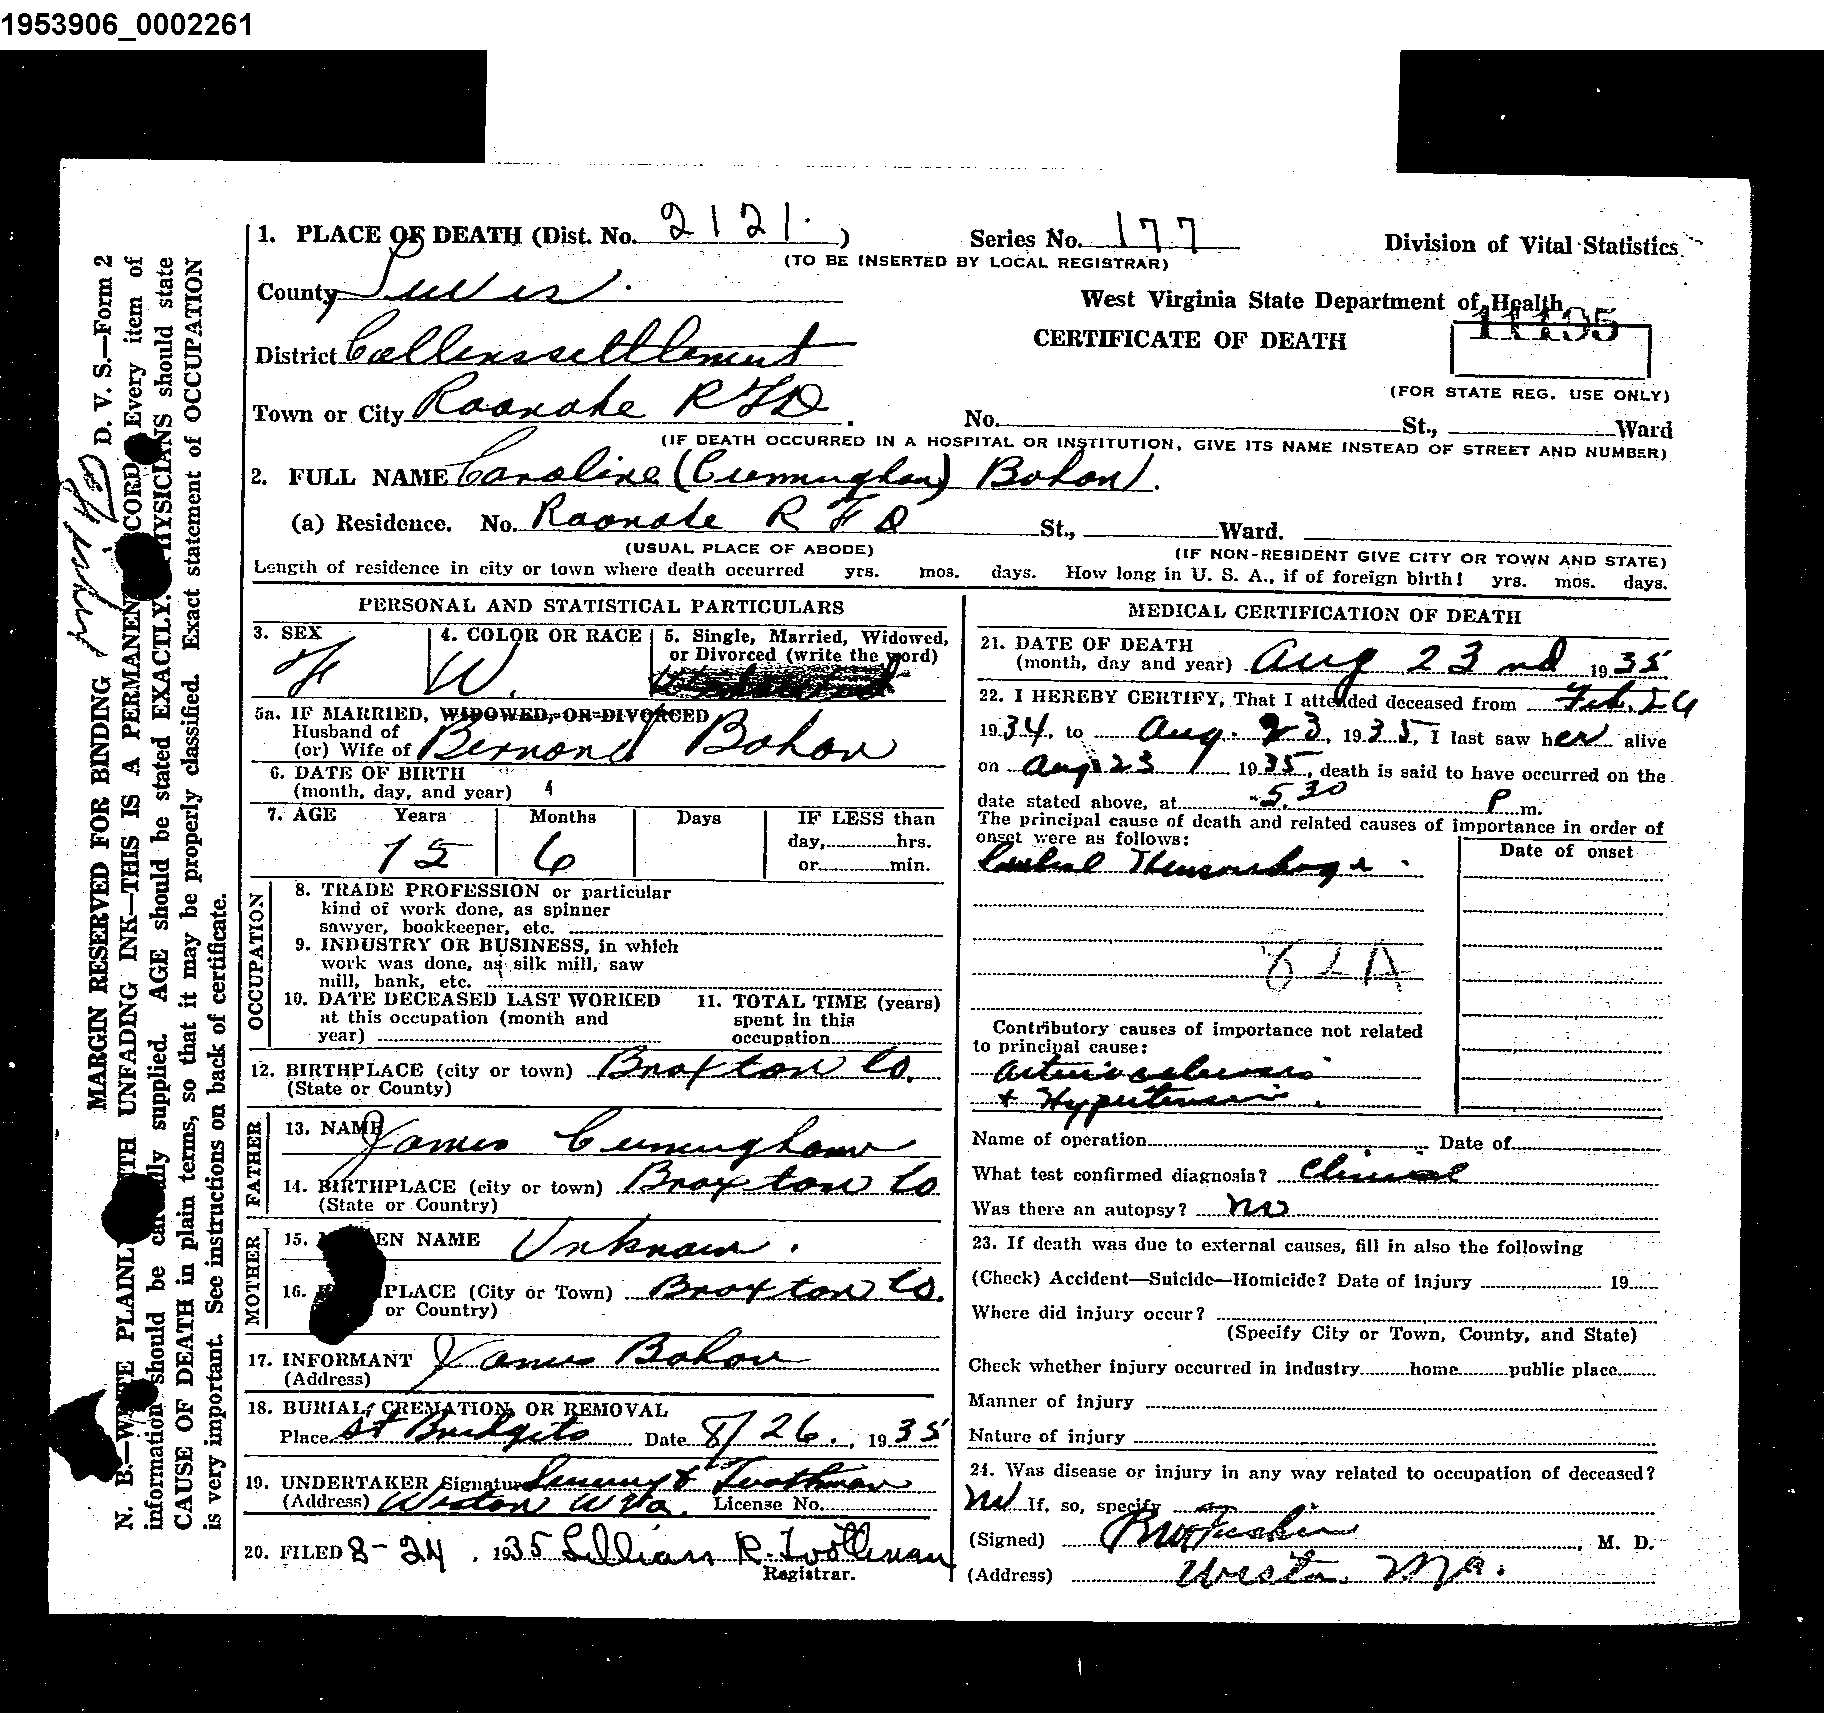 1953906_0002261
1. PLACE OF DEATH (Dist. No. 2121.)
Series No. 177
Division of Vital Statistics
(TO BE INSERTED BY LOCAL REGISTRAR)
County Lewis
West Virginia State Department of Health
11195
District Collenssettlement
CERTIFICATE OF DEATH
(FOR STATE REG. USE ONLY)
Town or City Roanoke RFD.
No. St., Ward
(IF DEATH OCCURRED IN A HOSPITAL OR INSTITUTION, GIVE ITS NAME INSTEAD OF STREET AND NUMBER)
2. FULL NAME Caroline (Cunningham) Bohon.
(a) Residence. No. Roanoke R F D St., Ward.
(USUAL PLACE OF ABODE) (IF NON-RESIDENT GIVE CITY OR TOWN AND STATE)
Length of residence in city or town where death occurred yrs. mos. days. How long in U. S. A., if of foreign birth! yrs. mos. days.
PERSONAL AND STATISTICAL PARTICULARS
3. SEX F
4. COLOR OR RACE W.
5. Single, Married, Widowed, or Divorced (write the word)
5a. IF MARRIED, WIDOWED, OR DIVORCED
Husband of
(or) Wife of Bernard Bohon
6. DATE OF BIRTH
(month, day, and year)
7. AGE Years Months Days IF LESS than
75 6 day, hrs.
or min.
OCCUPATION
8. TRADE PROFESSION or particular
kind of work done, as spinner
sawyer, bookkeeper, etc.
9. INDUSTRY OR BUSINESS, in which
work was done, as silk mill, saw
mill, bank, etc.
10. DATE DECEASED LAST WORKED
at this occupation (month and
year)
11. TOTAL TIME (years)
spent in this
occupation
12. BIRTHPLACE (city or town) Braxton Co.
(State or County)
FATHER
13. NAME James Cunningham
14. BIRTHPLACE (city or town) Braxton Co
(State or Country)
MOTHER
15. EN NAME Unknown.
16. PLACE (City or Town) Braxton Co.
or Country)
17. INFORMANT James Bohon
(Address)
18. BURIAL, CREMATION, OR REMOVAL
Place St Bridgets Date 8/26, 1935
19. UNDERTAKER Signature & Trothman
(Address) Weston W Va. License No.
20. FILED 8-24, 1935 Lillian R.
Registrar.
MEDICAL CERTIFICATION OF DEATH
21. DATE OF DEATH
(month, day and year) Aug 23nd 1935
22. I HEREBY CERTIFY, That I attended deceased from Feb. 26
1934, to Aug. 23, 1935, I last saw her alive
on Aug 23 1935, death is said to have occurred on the
date stated above, at 5.30 P m.
The principal cause of death and related causes of importance in order of
onset were as follows:
Date of onset
Cerebral Hemorrhage.
82A
Contributory causes of importance not related
to principal cause:
Arteriosclerosis
+ Hypertension.
Name of operation Date of
What test confirmed diagnosis? Clinical
Was there an autopsy? No
23. If death was due to external causes, fill in also the following
(Check) Accident—Suicide—Homicide? Date of injury 19
Where did injury occur?
(Specify City or Town, County, and State)
Check whether injury occurred in industry home public place
Manner of injury
Nature of injury
24. Was disease or injury in any way related to occupation of deceased?
No If, so, specify
(Signed) M. D.
(Address) Weston
D. V. S.—Form 2
MARGIN RESERVED FOR BINDING
N. B.—WRITE PLAINLY WITH UNFADING INK—THIS IS A PERMANENT RECORD Every item of
information should be carefully supplied. AGE should be stated EXACTLY. PHYSICIANS should state
CAUSE OF DEATH in plain terms, so that it may be properly classified. Exact statement of OCCUPATION
is very important. See instructions on back of certificate.